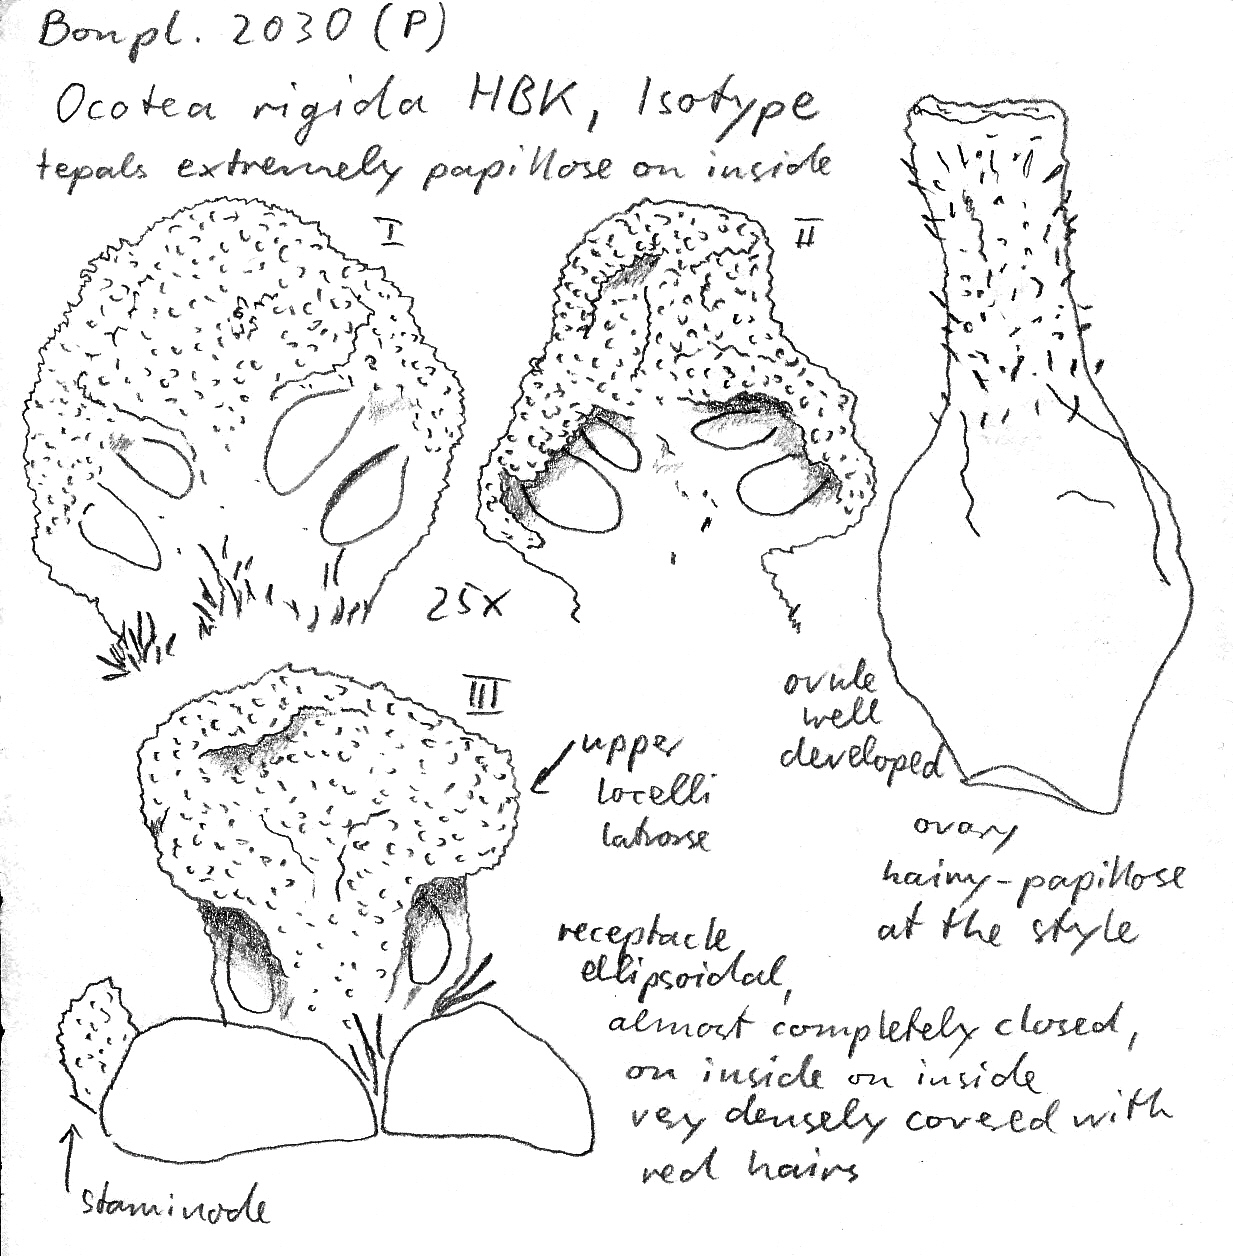 Bonpl. 2030 (P)
Ocotea rigida HBK, Isotype
tepals extremely papillose on inside
I
II
25x
III
upper
locelli
latrorse
ovule
well
developed
ovary
hairy-papillose
at the style
receptacle
ellipsoidal,
almost completely closed,
on inside on inside
very densely covered with
red hairs
staminode